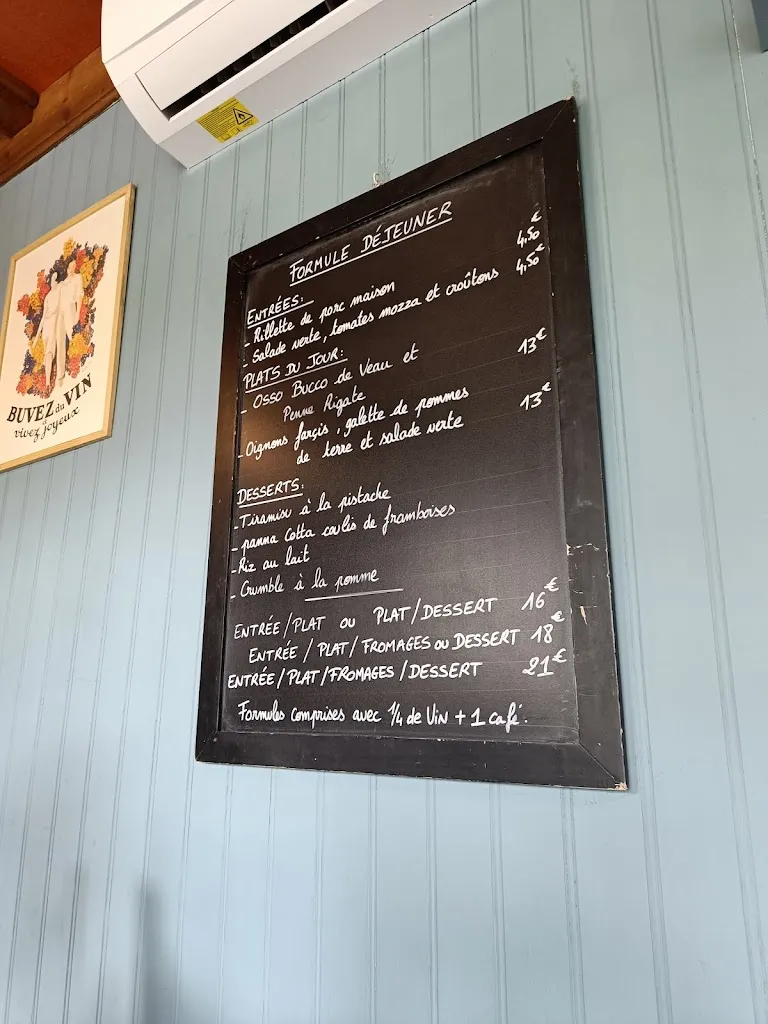 FORMULE DÉJEUNER
ENTRÉES: €
- Rillette de porc maison 4,50
- Salade verte, tomates mozza et croûtons 4,50€
PLATS DU JOUR:
- OSSO BUCCO de Veau et 13€
Penne Rigate
- Oignons farçis, galette de pommes 13€
de terre et salade verte
DESSERTS:
- Tiramisu à la pistache
- panna Cotta coulis de framboises
- Riz au lait
- Crumble à la pomme
ENTRÉE/PLAT OU PLAT/DESSERT 16€
ENTRÉE/PLAT/FROMAGES OU DESSERT 18€
ENTRÉE/PLAT/FROMAGES/DESSERT 21€
Formules comprises avec 1/4 de Vin + 1 café.
BUVEZ du VIN
et vivez joyeux